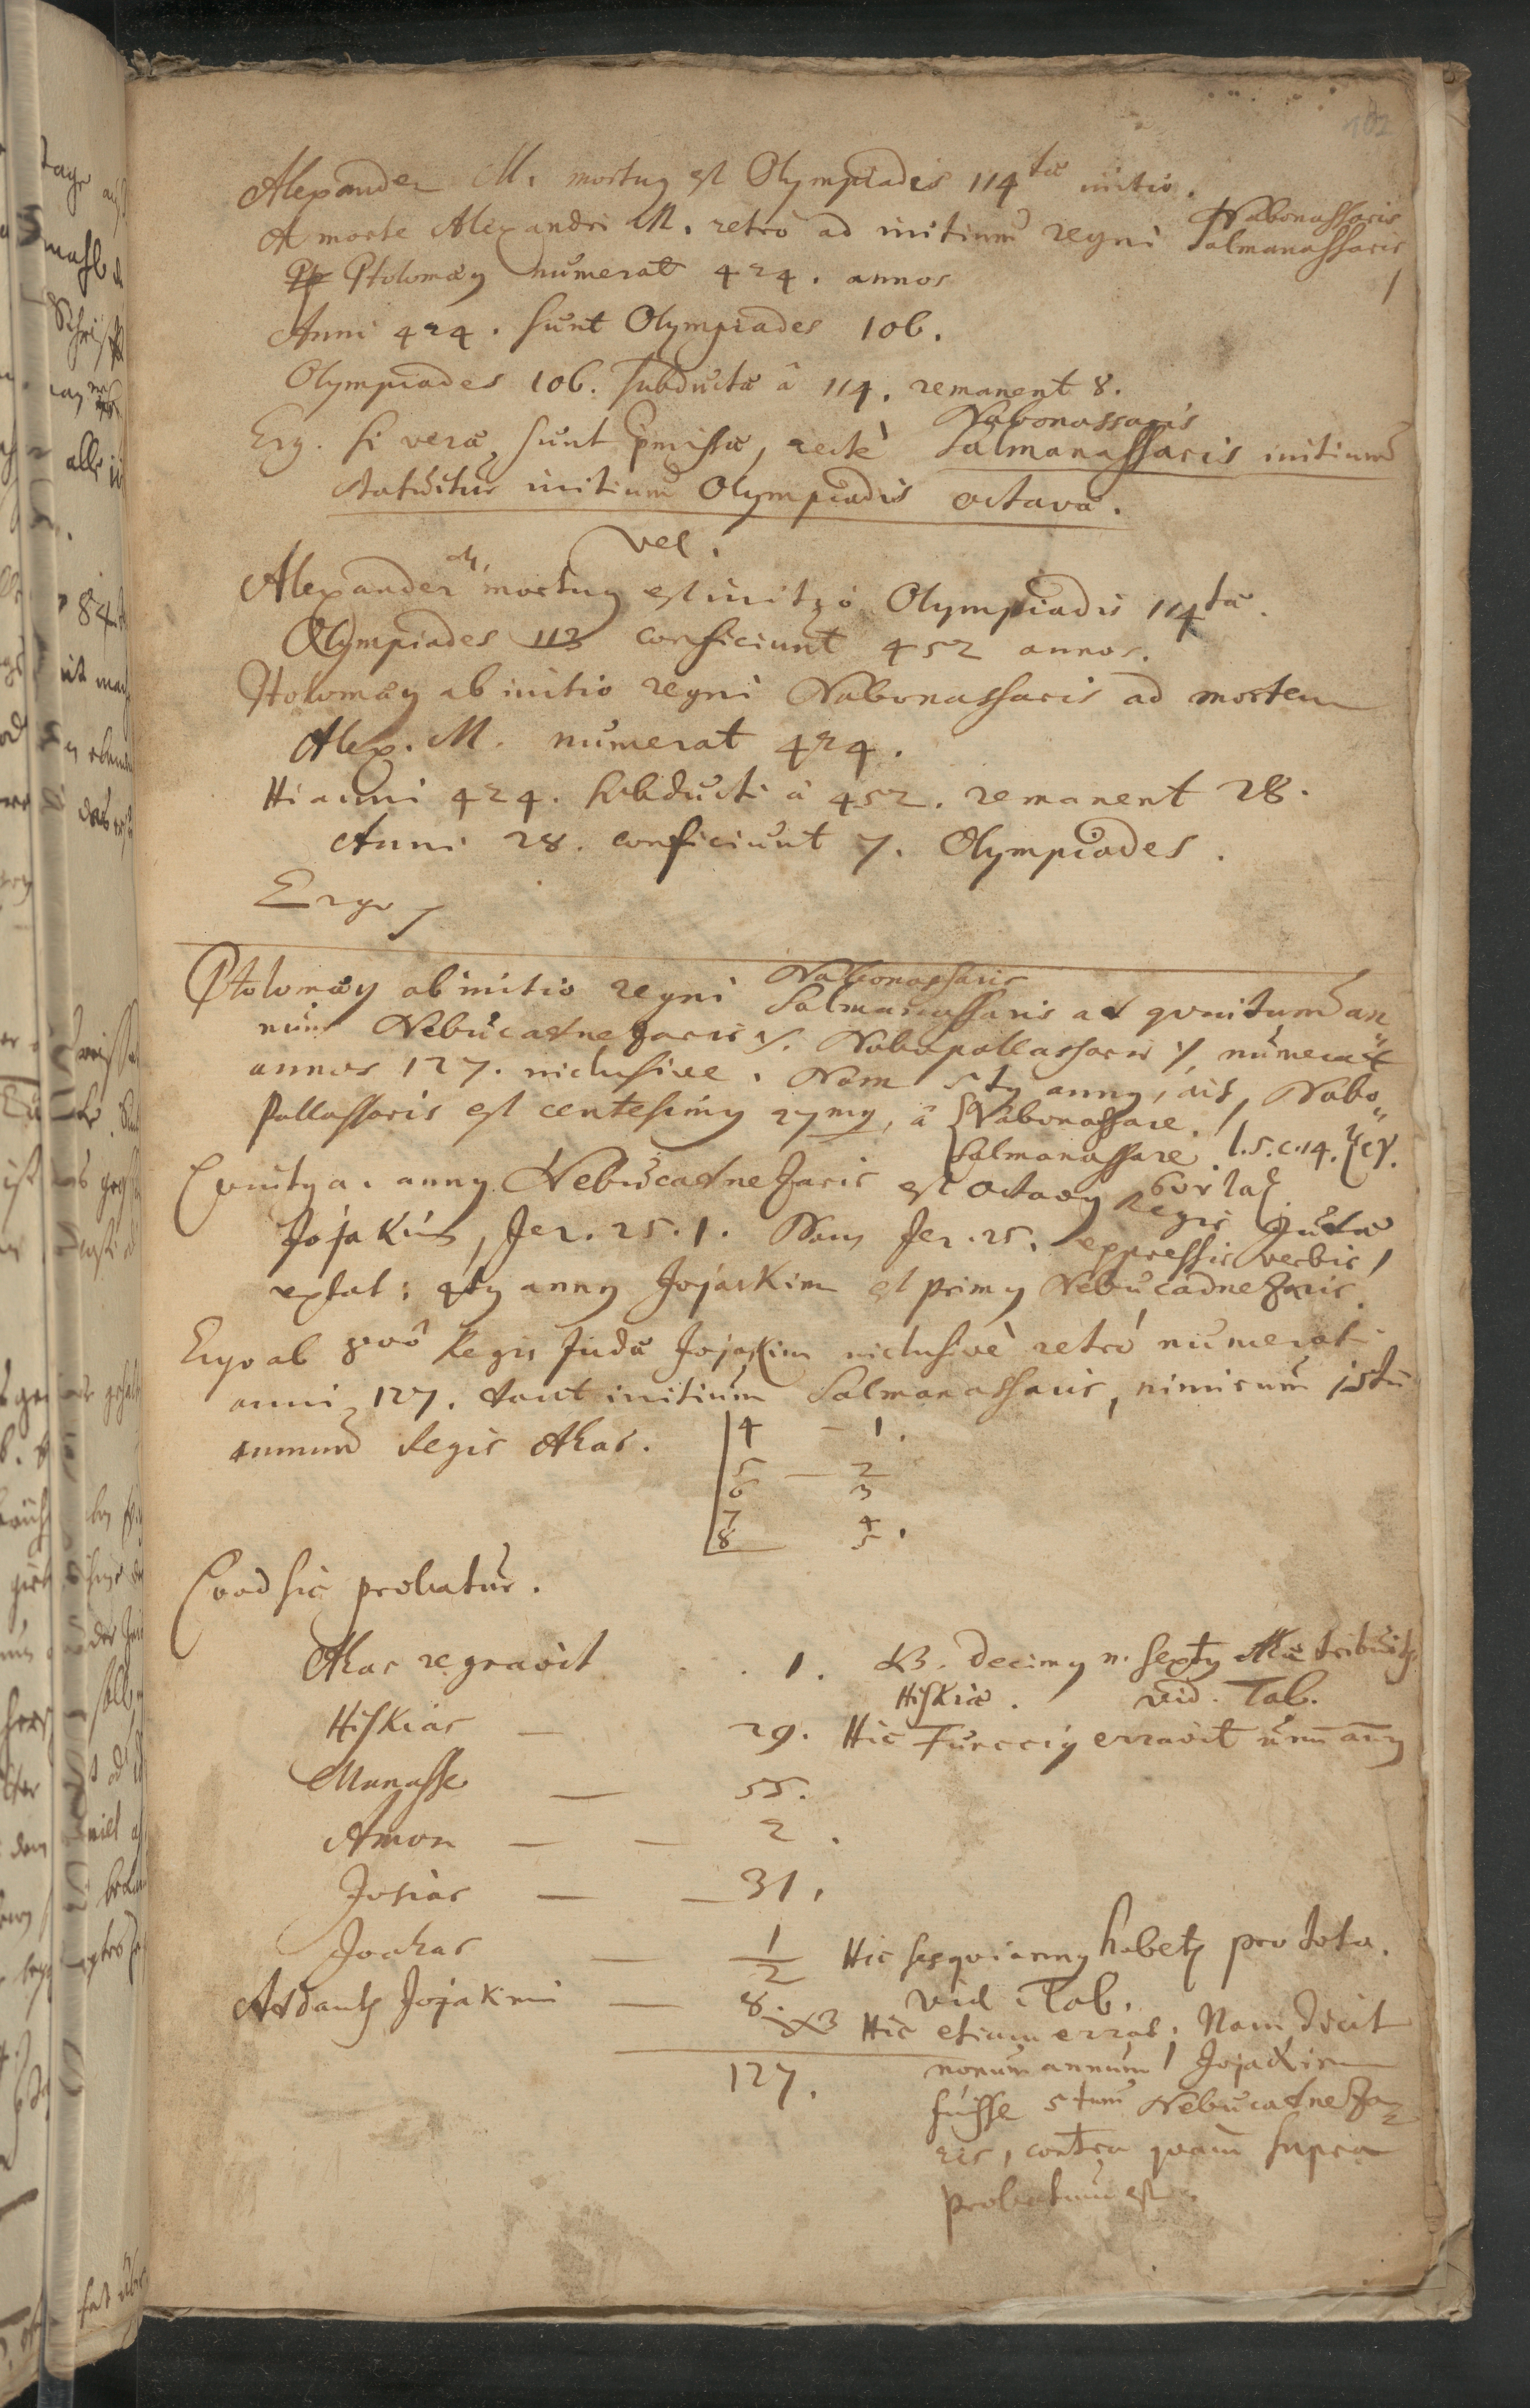 102
Alexander M. mortuꝰ est Olympiadis 114tae initio.
A morte Alexandri M. retrò ad initium regni Nabonassaris
Salmanassaris
Ptolomaeꝰ numerat 424. annos
Anni 424. sunt Olympiades 106.
Olympiades 106. subductae â 114. remanent 8.
Nabonassaris
Erg. si vera sunt pmissa, rectè Salmanassaris initium
statuitur initium Olympiadis octavae.
vel.
Alexander M. mortuꝰ est initio Olympiadis 114tae.
Olympiades 113 conficiunt 452 annos.
Ptolomaeꝰ ab initio regni Nabonassaris ad mortem
Alex. M. numerat 424.
Hi anni 424. subducti â 452. remanent 28.
Anni 28. conficiunt 7. Olympiades.
Ergo
Nabonassaris
Ptolomaeꝰ ab initio regni Salmanassaris ad qvintum an
num Nebucadnezaris s. Nabopollassaris numerat
annos 127. inclusive. Nam 5tꝰ annꝰ, ait, Nabo
pollassaris est centesimꝰ 27mꝰ, â Nabonassare.
Salmanassare. l. 5. c. 14.
Qvintꝰ a. annꝰ Nebucadnezaris est octavꝰ Regis Judae
Jojakim, Jer. 25. 1. Nam Jer. 25. expressis verbis
extat: 4tꝰ annꝰ Jojakim est primꝰ Nebucadnezaris.
Ergo ab 8vô Regis Judae Jojakim inclusivè retrò numerati
anni 127. dant initium Salmanassaris, nimirum
annum Regis Ahas.
4 – 1.
5 – 2
6 3
7 4
8 5.
Qvod sic probatur.
Ahas regnavit . . 1. NB. Decimꝰ n. sextꝰ Ahae tribuitr
Hiskiae. vid. Tab.
Hiskias — 29. Hic Funcciꝰ erravit
Manasse — 55.
Amon — — 2.
Josias — — 31.
Joahas — 1/2 Hic sesqviannꝰ habetr pro toto.
vid. Tab.
Addantr Jojakimi — 8. NB Hic etiam errat; Nam dicit
127. nonum annum Jojakim
fuisse 5tum Nebucadneza
ris, contra qvam supra
probatum est.